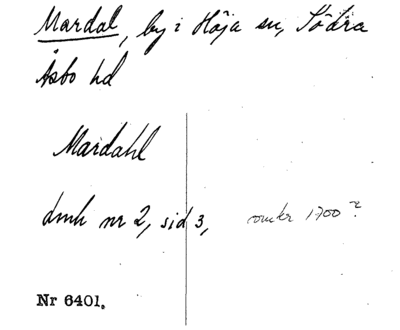 Mardal, by i Höja sn, Södra
Åsbo hd
Mardahl
dmh nr 2, sid 3, omkr 1700?
Nr 6401.